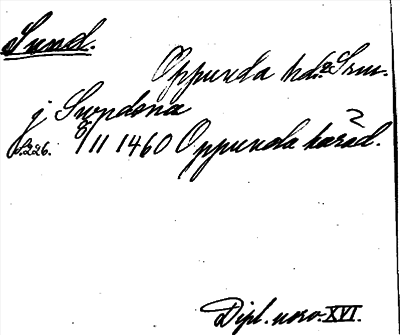 Sund.
Oppunda hd. Srm.
j Swndona
s. 226. 8/11 1460 Oppunda hærad.
Dipl. norv. XVI.